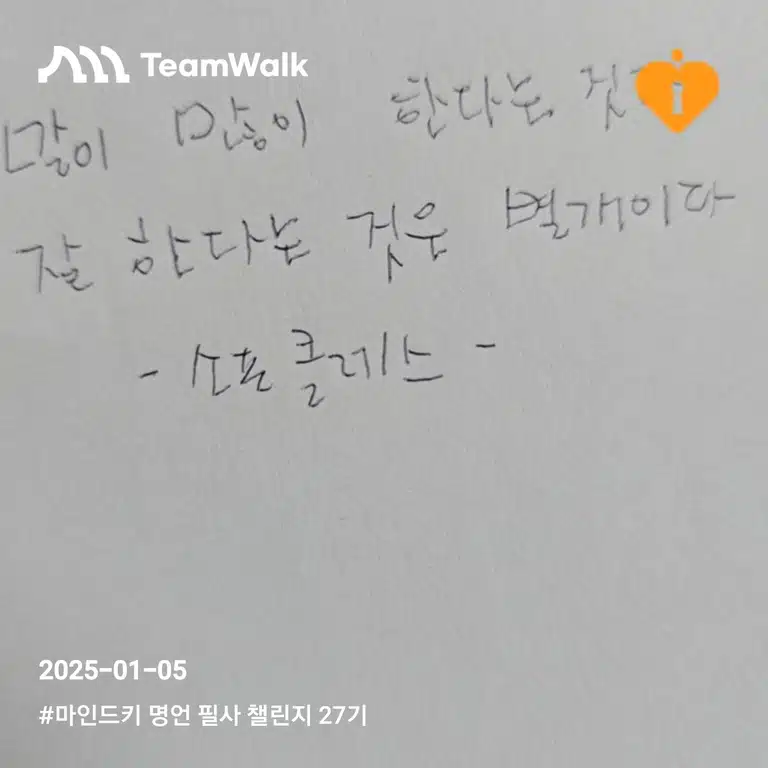 TeamWalk
많이 한다는
잘 한다는 것은 별개이다
- 소포클레스 -
2025-01-05
#마인드키 명언 필사 챌린지 27기